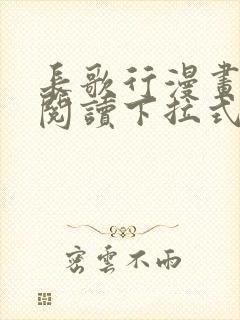 長歌行漫畫
閱讀下拉式
密雲不雨